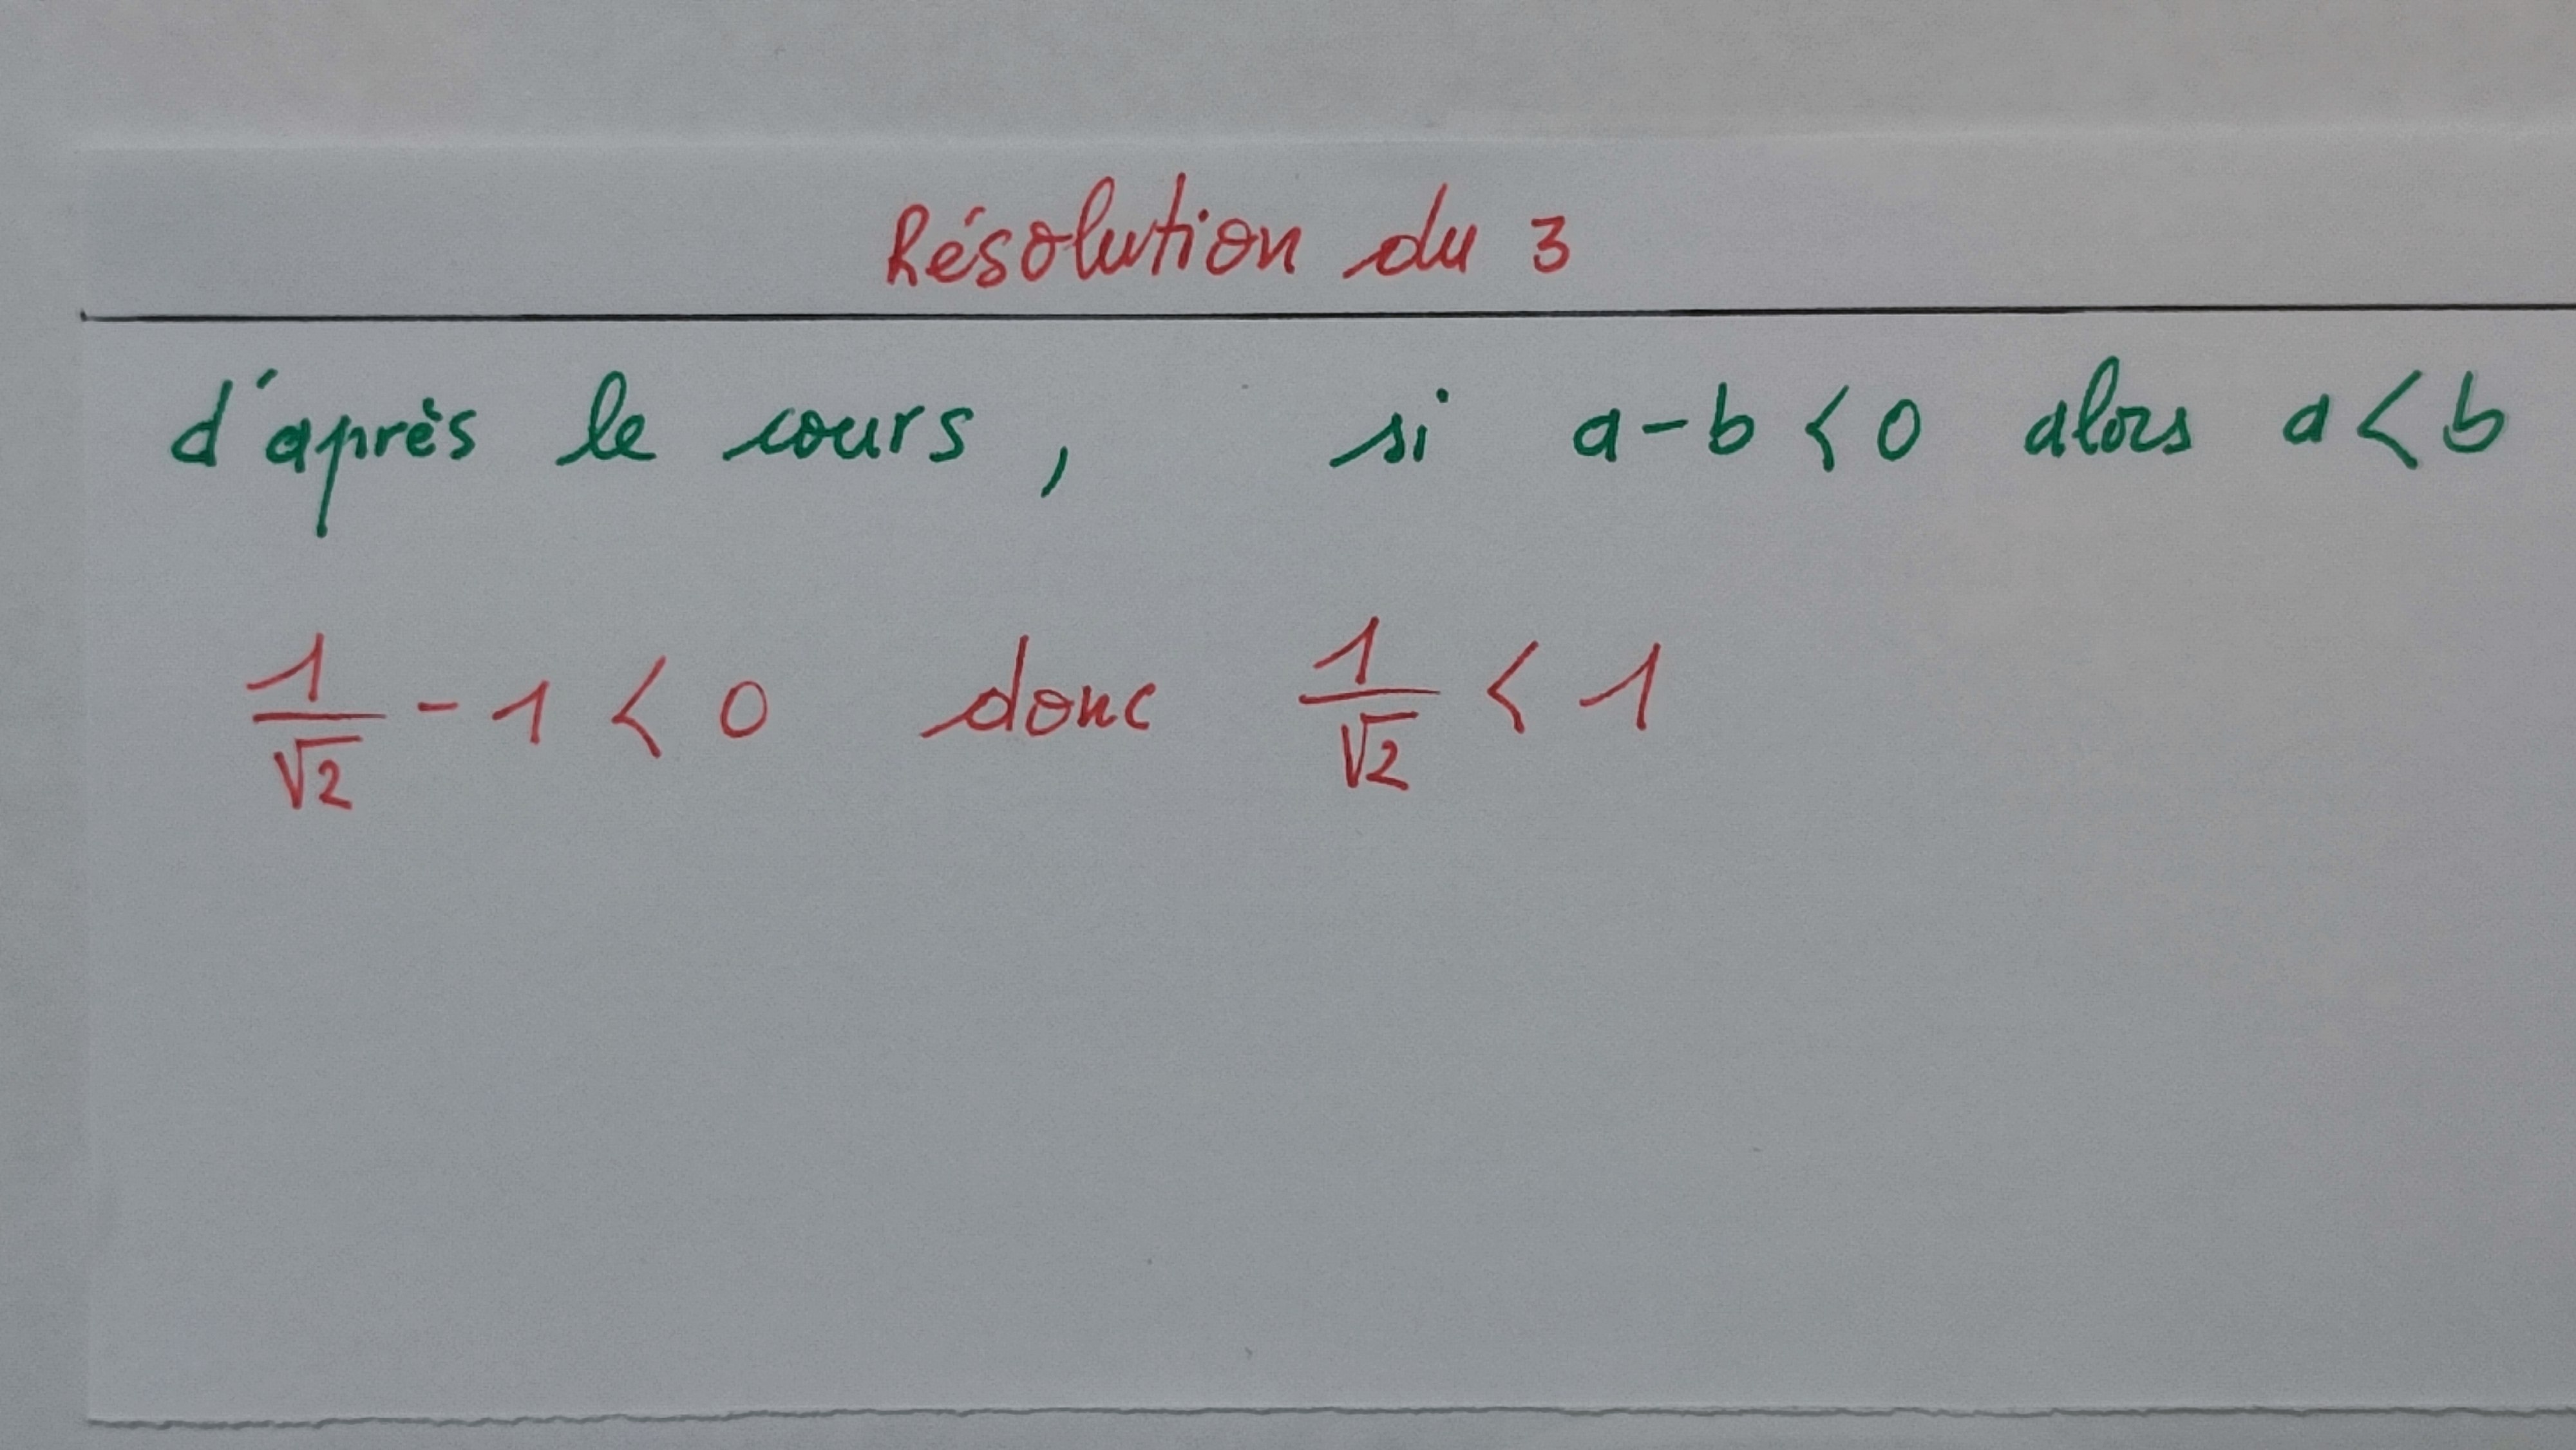 Résolution du 3
d'après le cours, si a-b < 0 alors a < b
1/√2 - 1 < 0 donc 1/√2 < 1